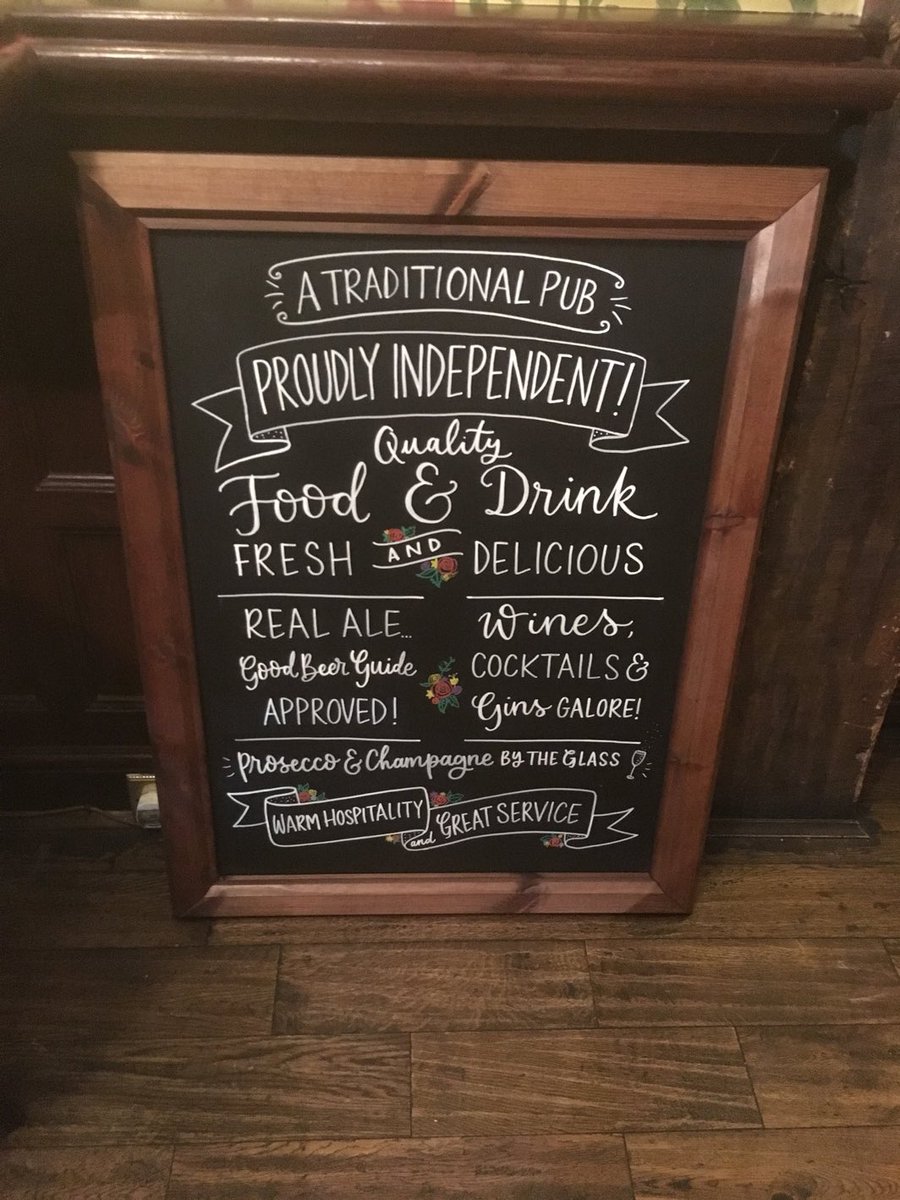 A TRADITIONAL PUB
PROUDLY INDEPENDENT!
Quality
Food & Drink
FRESH AND DELICIOUS
REAL ALE...
Good Beer Guide
APPROVED!
Wines,
COCKTAILS &
Gins GALORE!
Prosecco & Champagne BY THE GLASS
WARM HOSPITALITY and GREAT SERVICE